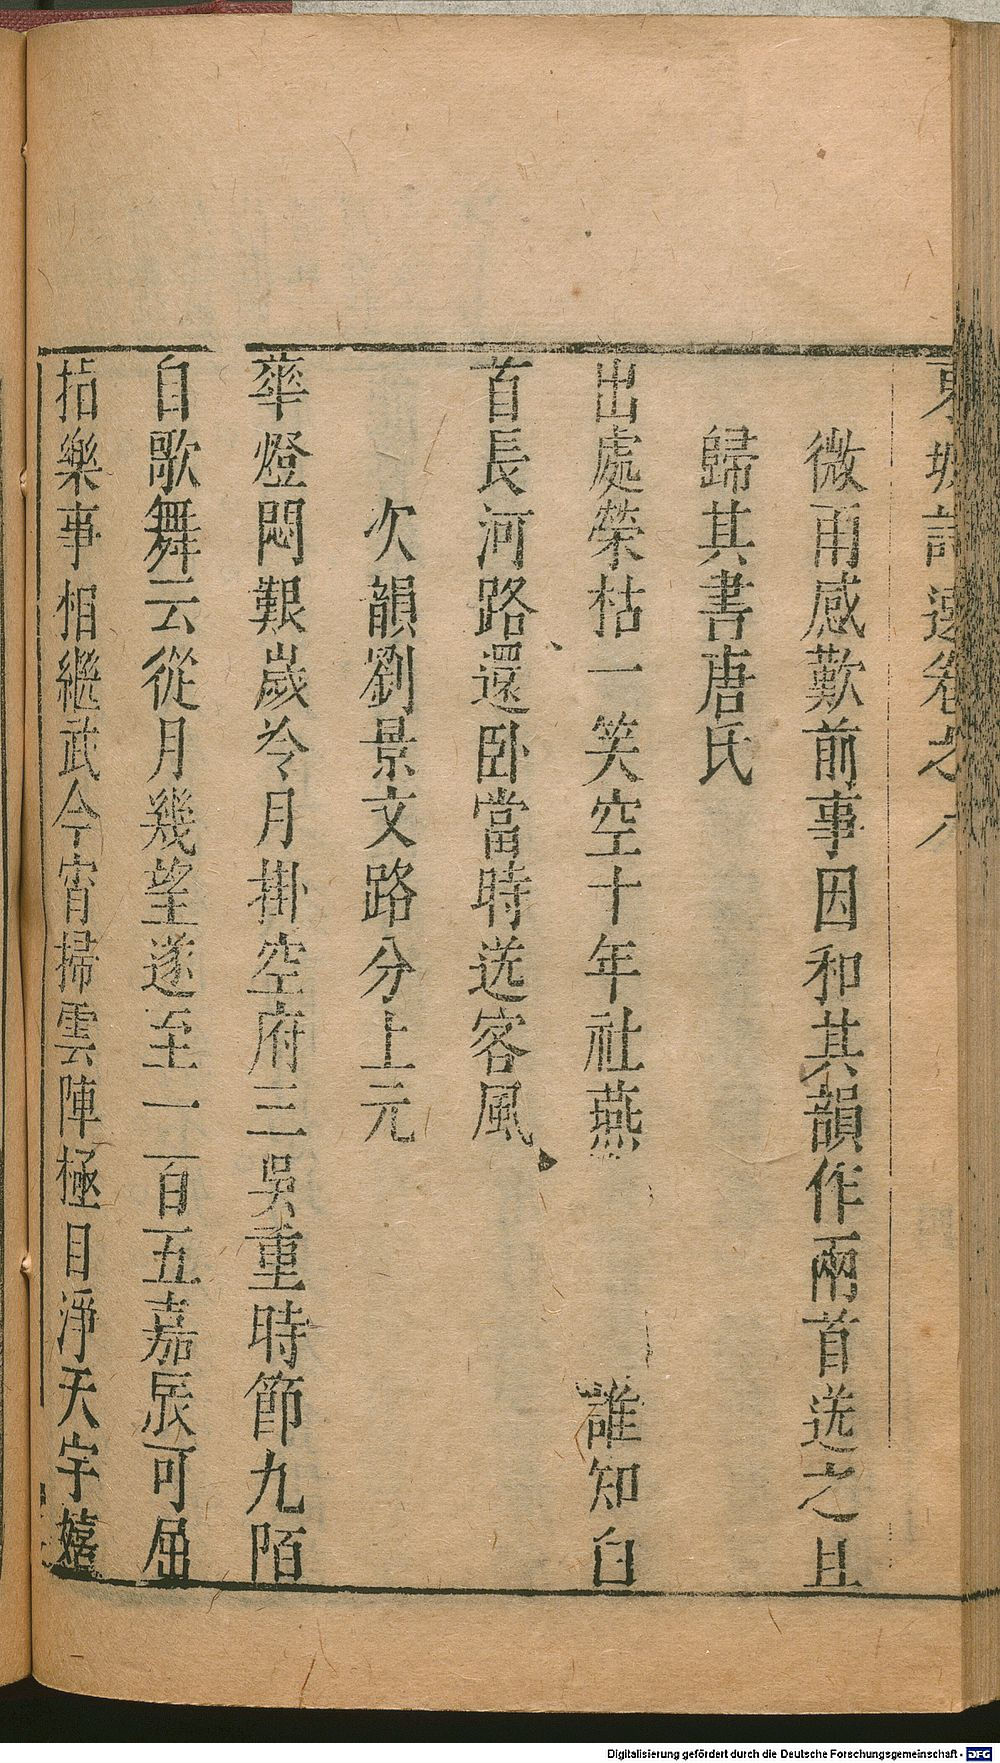 東坡詩選卷之八
微雨感歎前事因和其韻作兩首送之且
歸其書唐氏
出處榮枯一笑空十年社燕誰知白
首長河路還卧當時送客風
次韻劉景文路分上元
華燈悶艱歲冷月掛空府三吳重時節九陌
自歌舞云從月幾望遂至一百五嘉辰可屈
指樂事相繼武今宵掃雲陣極目淨天宇嬉
Digitalisierung gefördert durch die Deutsche Forschungsgemeinschaft - DFG